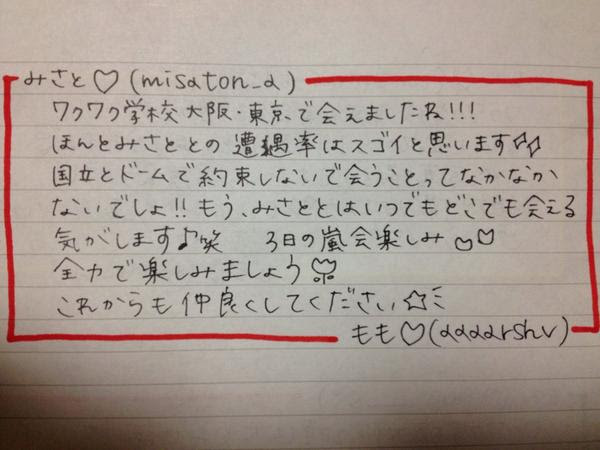 みさと♡(misaton_a)
ワクワク学校大阪・東京で会えましたね!!!
ほんとみさととの遭遇率はスゴイと思います
国立とドームで約束しないで会うことってなかなか
ないでしょ!!もう、みさととはいつでもどこでも会える
気がします♪笑 3日の嵐会楽しみ♡♡
全力で楽しみましょう
これからも仲良くしてください☆
もも♡(aaaarshv)